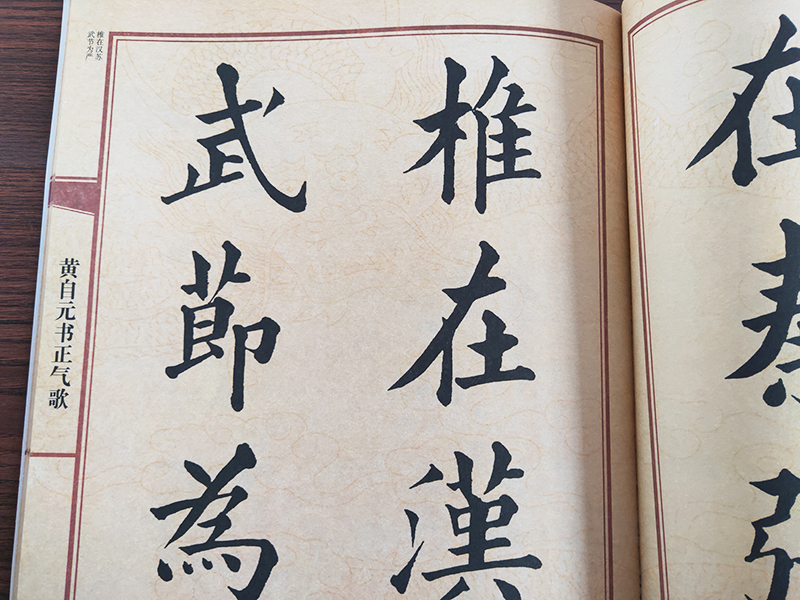 在秦
椎在漢
武節為
椎在汉苏
武节为严
黄自元书正气歌